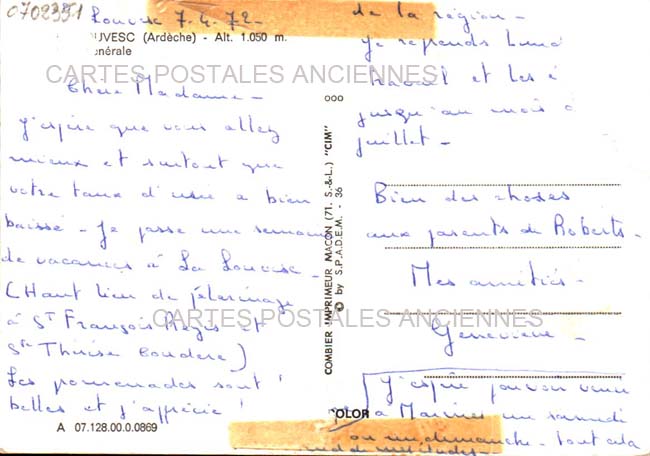 0702351
Louvesc 7.4.72 -
OUVESC (Ardèche) - Alt. 1.050 m.
énérale
CARTES POSTALES ANCIENNES
Chère Madame -
J'espère que vous allez
mieux et surtout que
votre taux d'urée a bien
baissé - Je passe une semaine
de vacances à La Louvesc -
(Haut lieu de pélerinage
à St François Régis et
Ste Thérèse Couderc)
Les promenades sont
belles et j'apprécie
A 07.128.00.0.0869
COMBIER IMPRIMEUR MACON (71. S.-&-L.) "CIM"
© by S.P.A.D.E.M. - 36
de la région -
Je reprends Lund
travail et les é
jusqu'au mois d
juillet -
Bien des choses
aux parents de Roberts -
Mes amitiés -
CARTES POSTALES ANCIENNES
Geneviève -
J'espère pouvoir venir
à un samedi
OLOR
ou un dimanche - tout cela